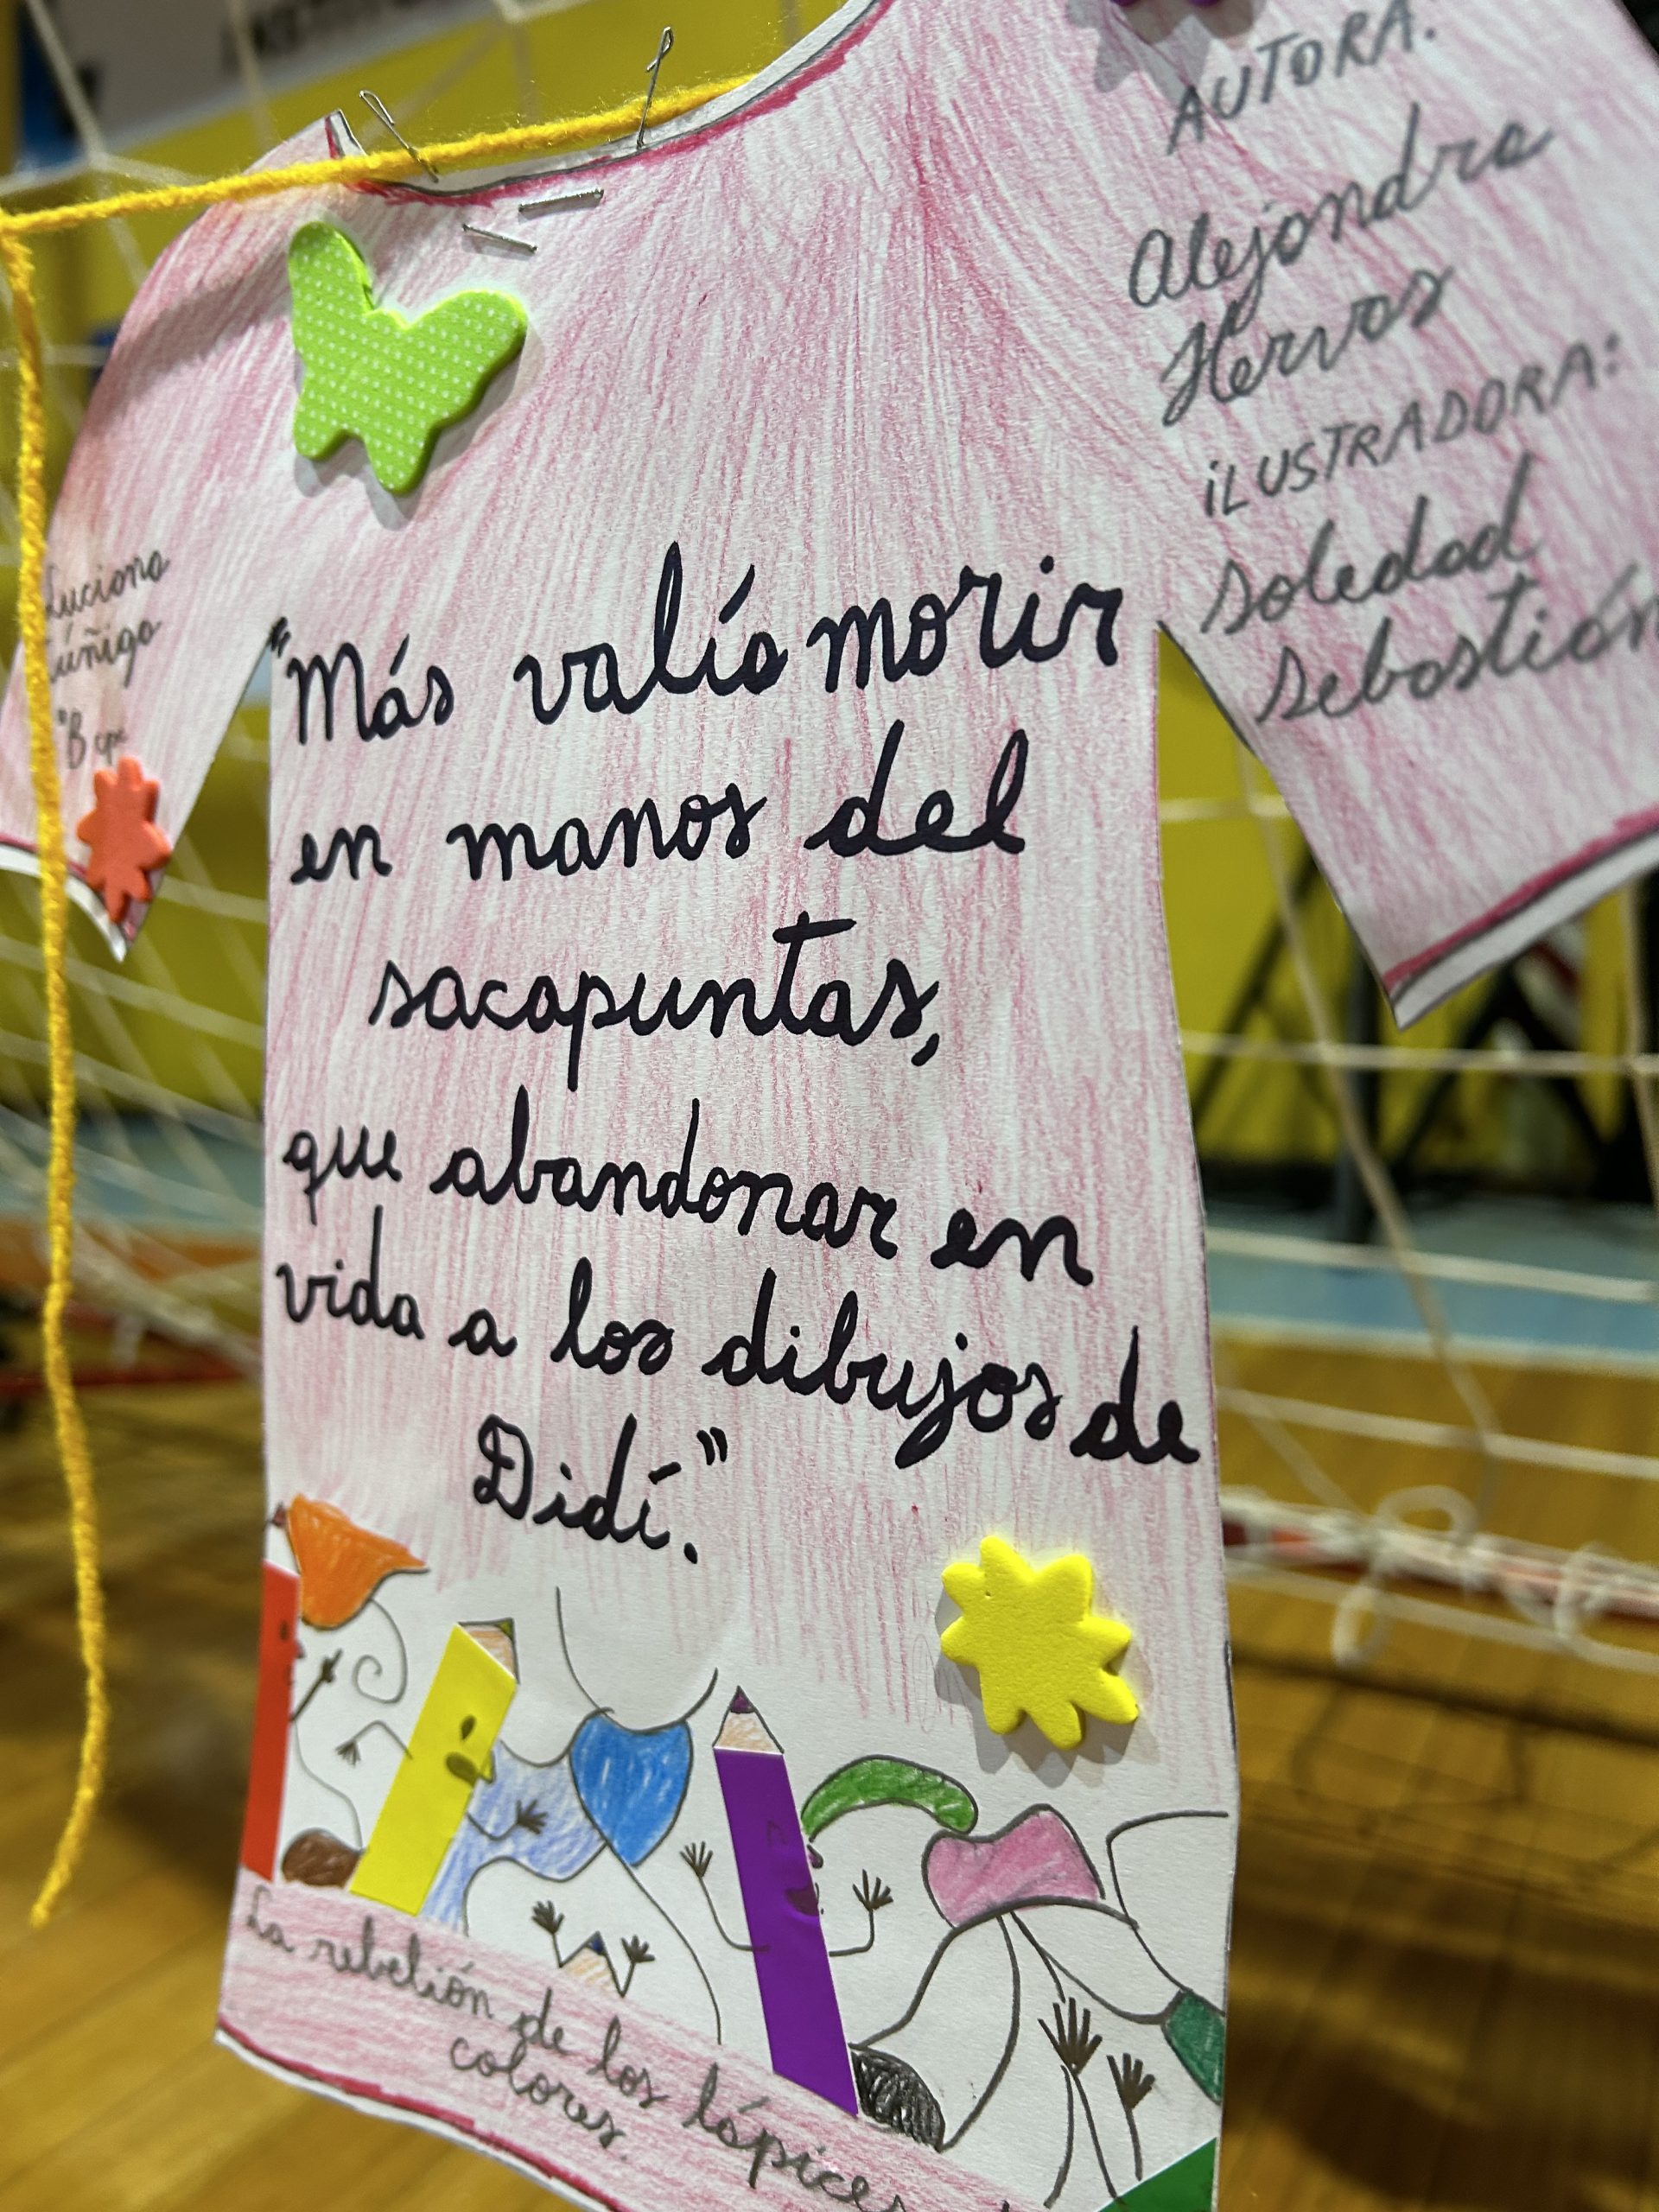 AUTORA:
Alejandra
Hervas
iLUSTRADORA:
Soledad
Sebastián
Luciana
Zúñiga
"Más valía morir
en manos del
sacapuntas,
que abandonar en
vida a los dibujos de
Didí".
La rebelión de los lápices
colores.